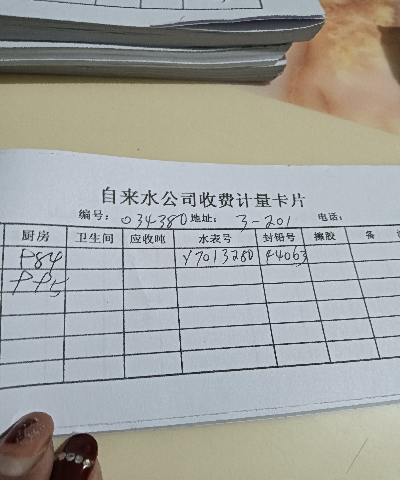 自来水公司收费计量卡片
编号：034380 地址：3-201 电话：
厨房 卫生间 应收吨 水表号 封铅号 擦胶 备
P84 Y7013280 44063